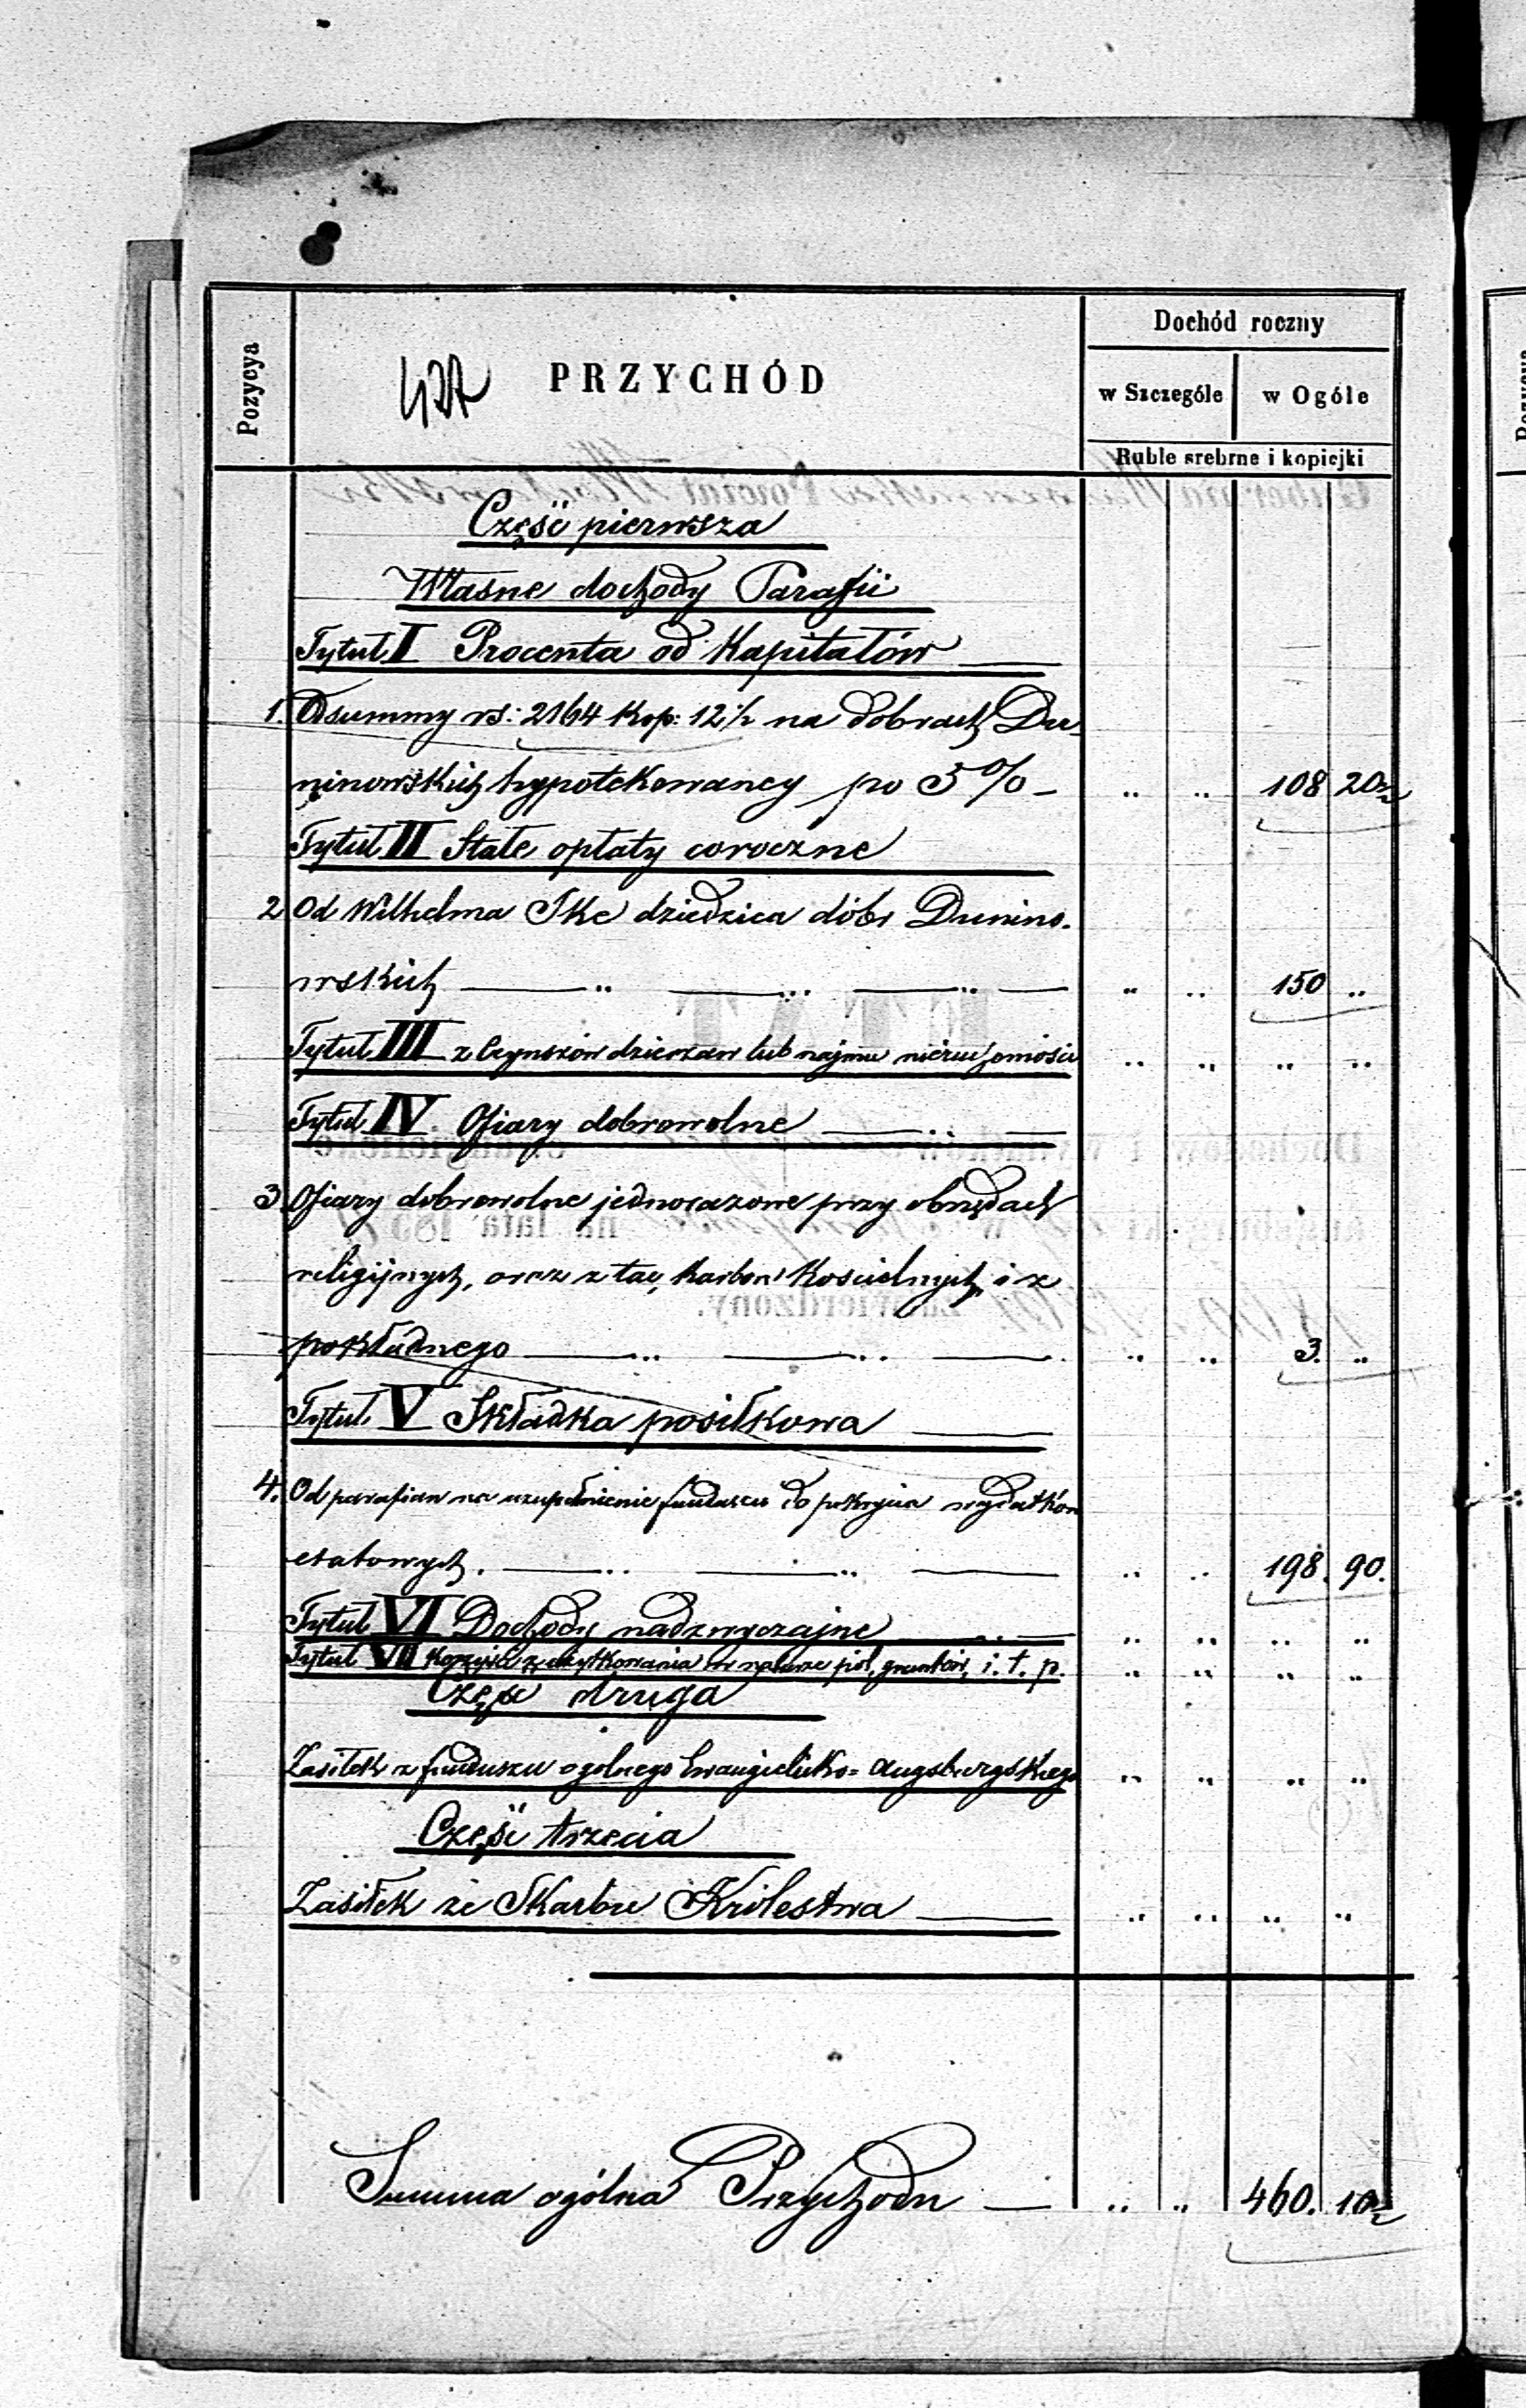 Pozycya
PRZYCHÓD
Dochód roczny
w Szczególe
w Ogóle
Ruble srebrne i kopiejki
Część pierwsza
Własne dochody Parafii
Tytuł I Procenta od Kapitałów
1. Od summy rs: 2164 kop: 12½ na dobrach Du-
ninowskich hypotekowaney po 5% - " " 108 20½
Tytuł II Stałe opłaty coroczne
2 Od Wilhelma Ike dziedzica dóbr Dunino-
wskich " " 150 "
Tytuł III z Czynszów dzierżaw lub najmu nieruchomości " " " "
Tytuł IV Ofiary dobrowolne
3. Ofiary dobrowolne jednorazowe przy obrzędach
religijnych, oraz z tac, karbon Kościelnych i z
pokładnego " " 3. "
Tytuł V Składka posiłkowa
4. Od parafian na uzupełnienie funduszu do pokrycia wydatków
etatowych. " " 198. 90.
Tytuł VI Dochody nadzwyczajne " " " "
Tytuł VII Korzyści z użytkowania w naturze pól, gruntów, i. t. p. " " " "
Część druga
Zasiłek z funduszu ogólnego Ewangielicko=Augsburgskiego " " " "
Część trzecia
Zasiłek ze Skarbu Królestwa " " " "
Summa ogólna Przychodu " " 460. 10½